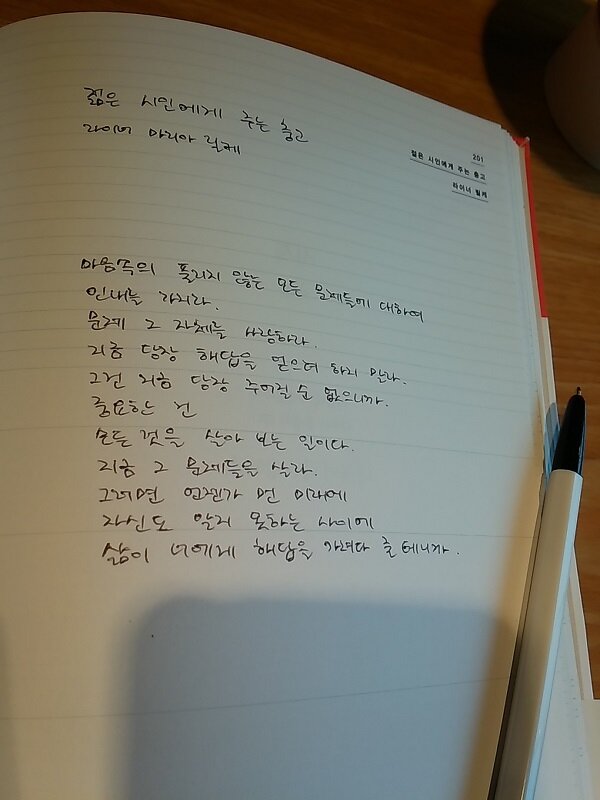 젊은 시인에게 주는 충고
라이너 마리아 릴케
251
젊은 시인에게 주는 충고
라이너 릴케
마음속의 풀리지 않는 모든 문제들에 대하여
인내를 가지라.
문제 그 자체를 사랑하라.
지금 당장 해답을 얻으려 하지 말라.
그건 지금 당장 주어질 순 없으니까.
중요한 건
모든 것을 살아 보는 일이다.
지금 그 문제들을 살라.
그러면 언젠가 먼 미래에
자신도 알지 못하는 사이에
삶이 너에게 해답을 가져다 줄 테니까.